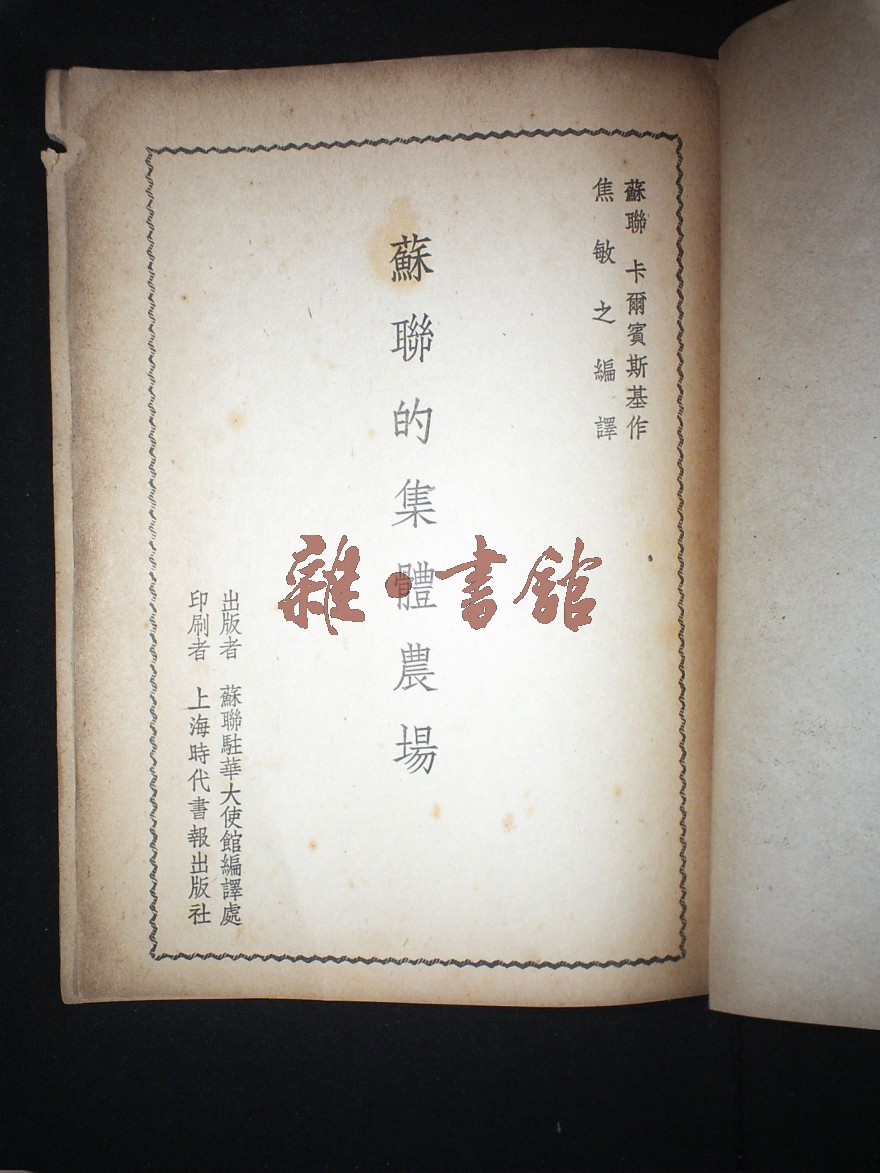 蘇聯 卡爾賓斯基作
焦敏之編譯
蘇聯的集體農場
出版者 蘇聯駐華大使館編譯處
印刷者 上海時代書報出版社
雜·書館